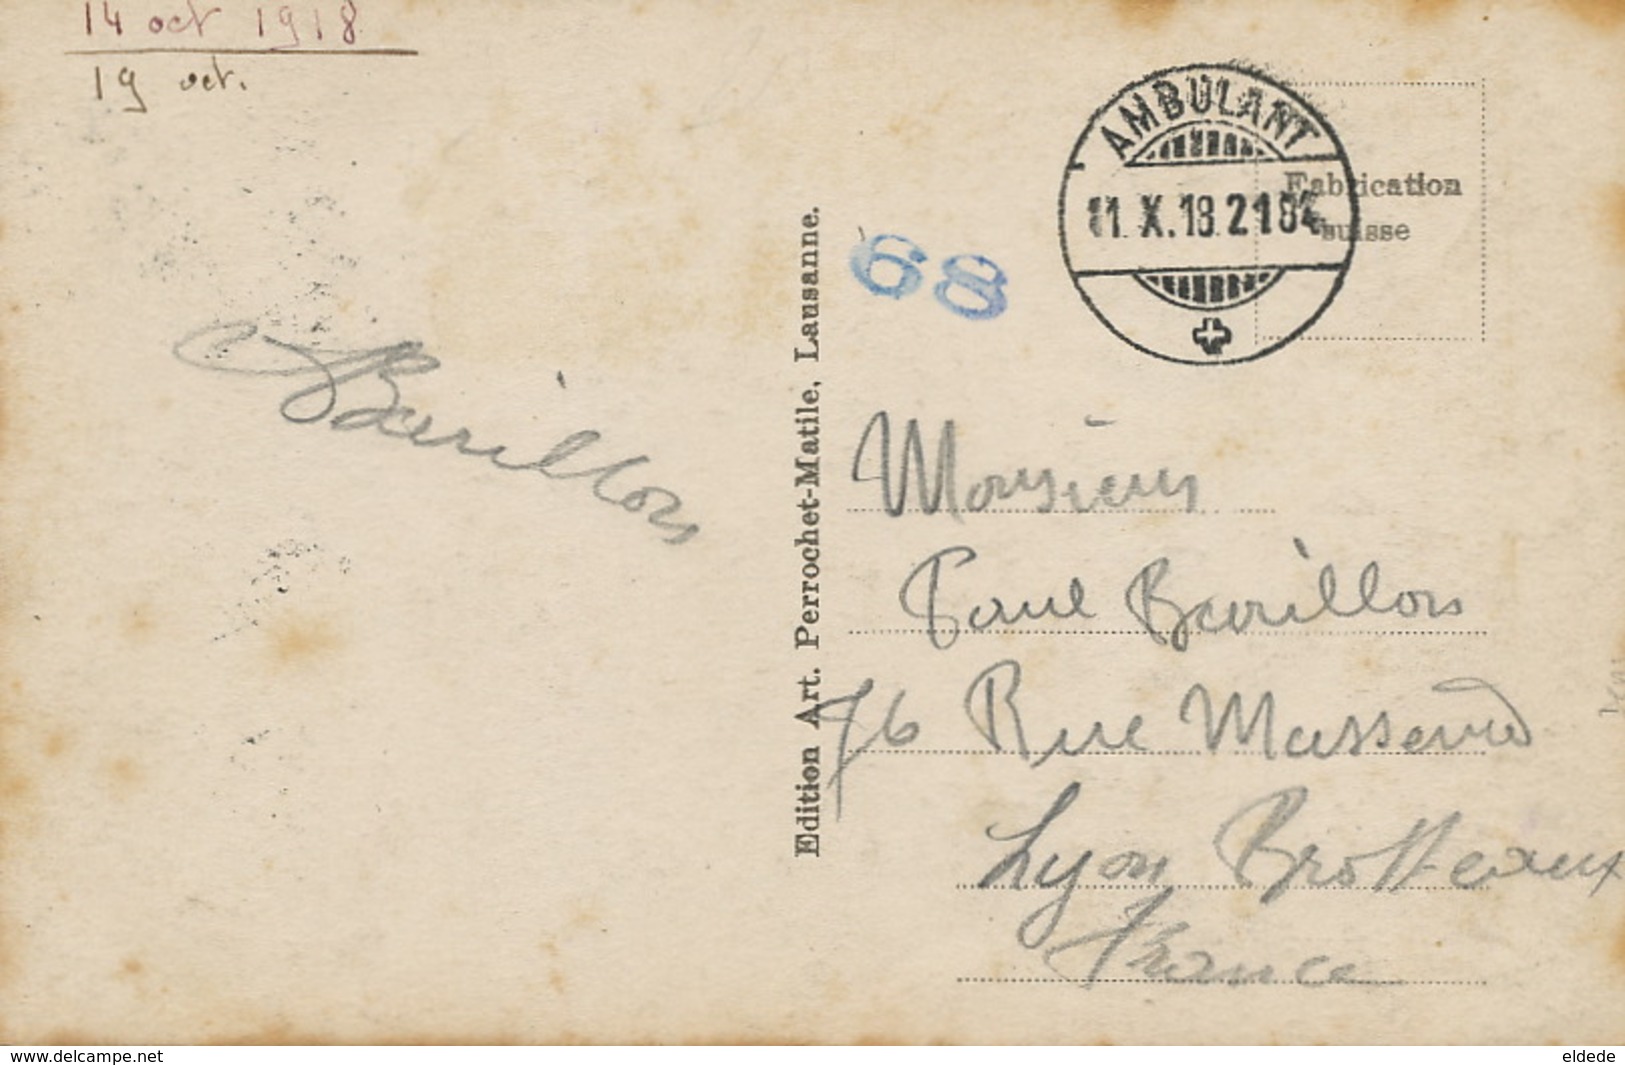 14 oct 1918
19 oct.
AMBULANT
11.X.18.2184
Fabrication
suisse
68
Edition Art. Perrochet-Matile, Lausanne.
Barillon
Monsieur
Paul Barillon
76 Rue Massena
Lyon Brotteaux
France
www.delcampe.net
eldede